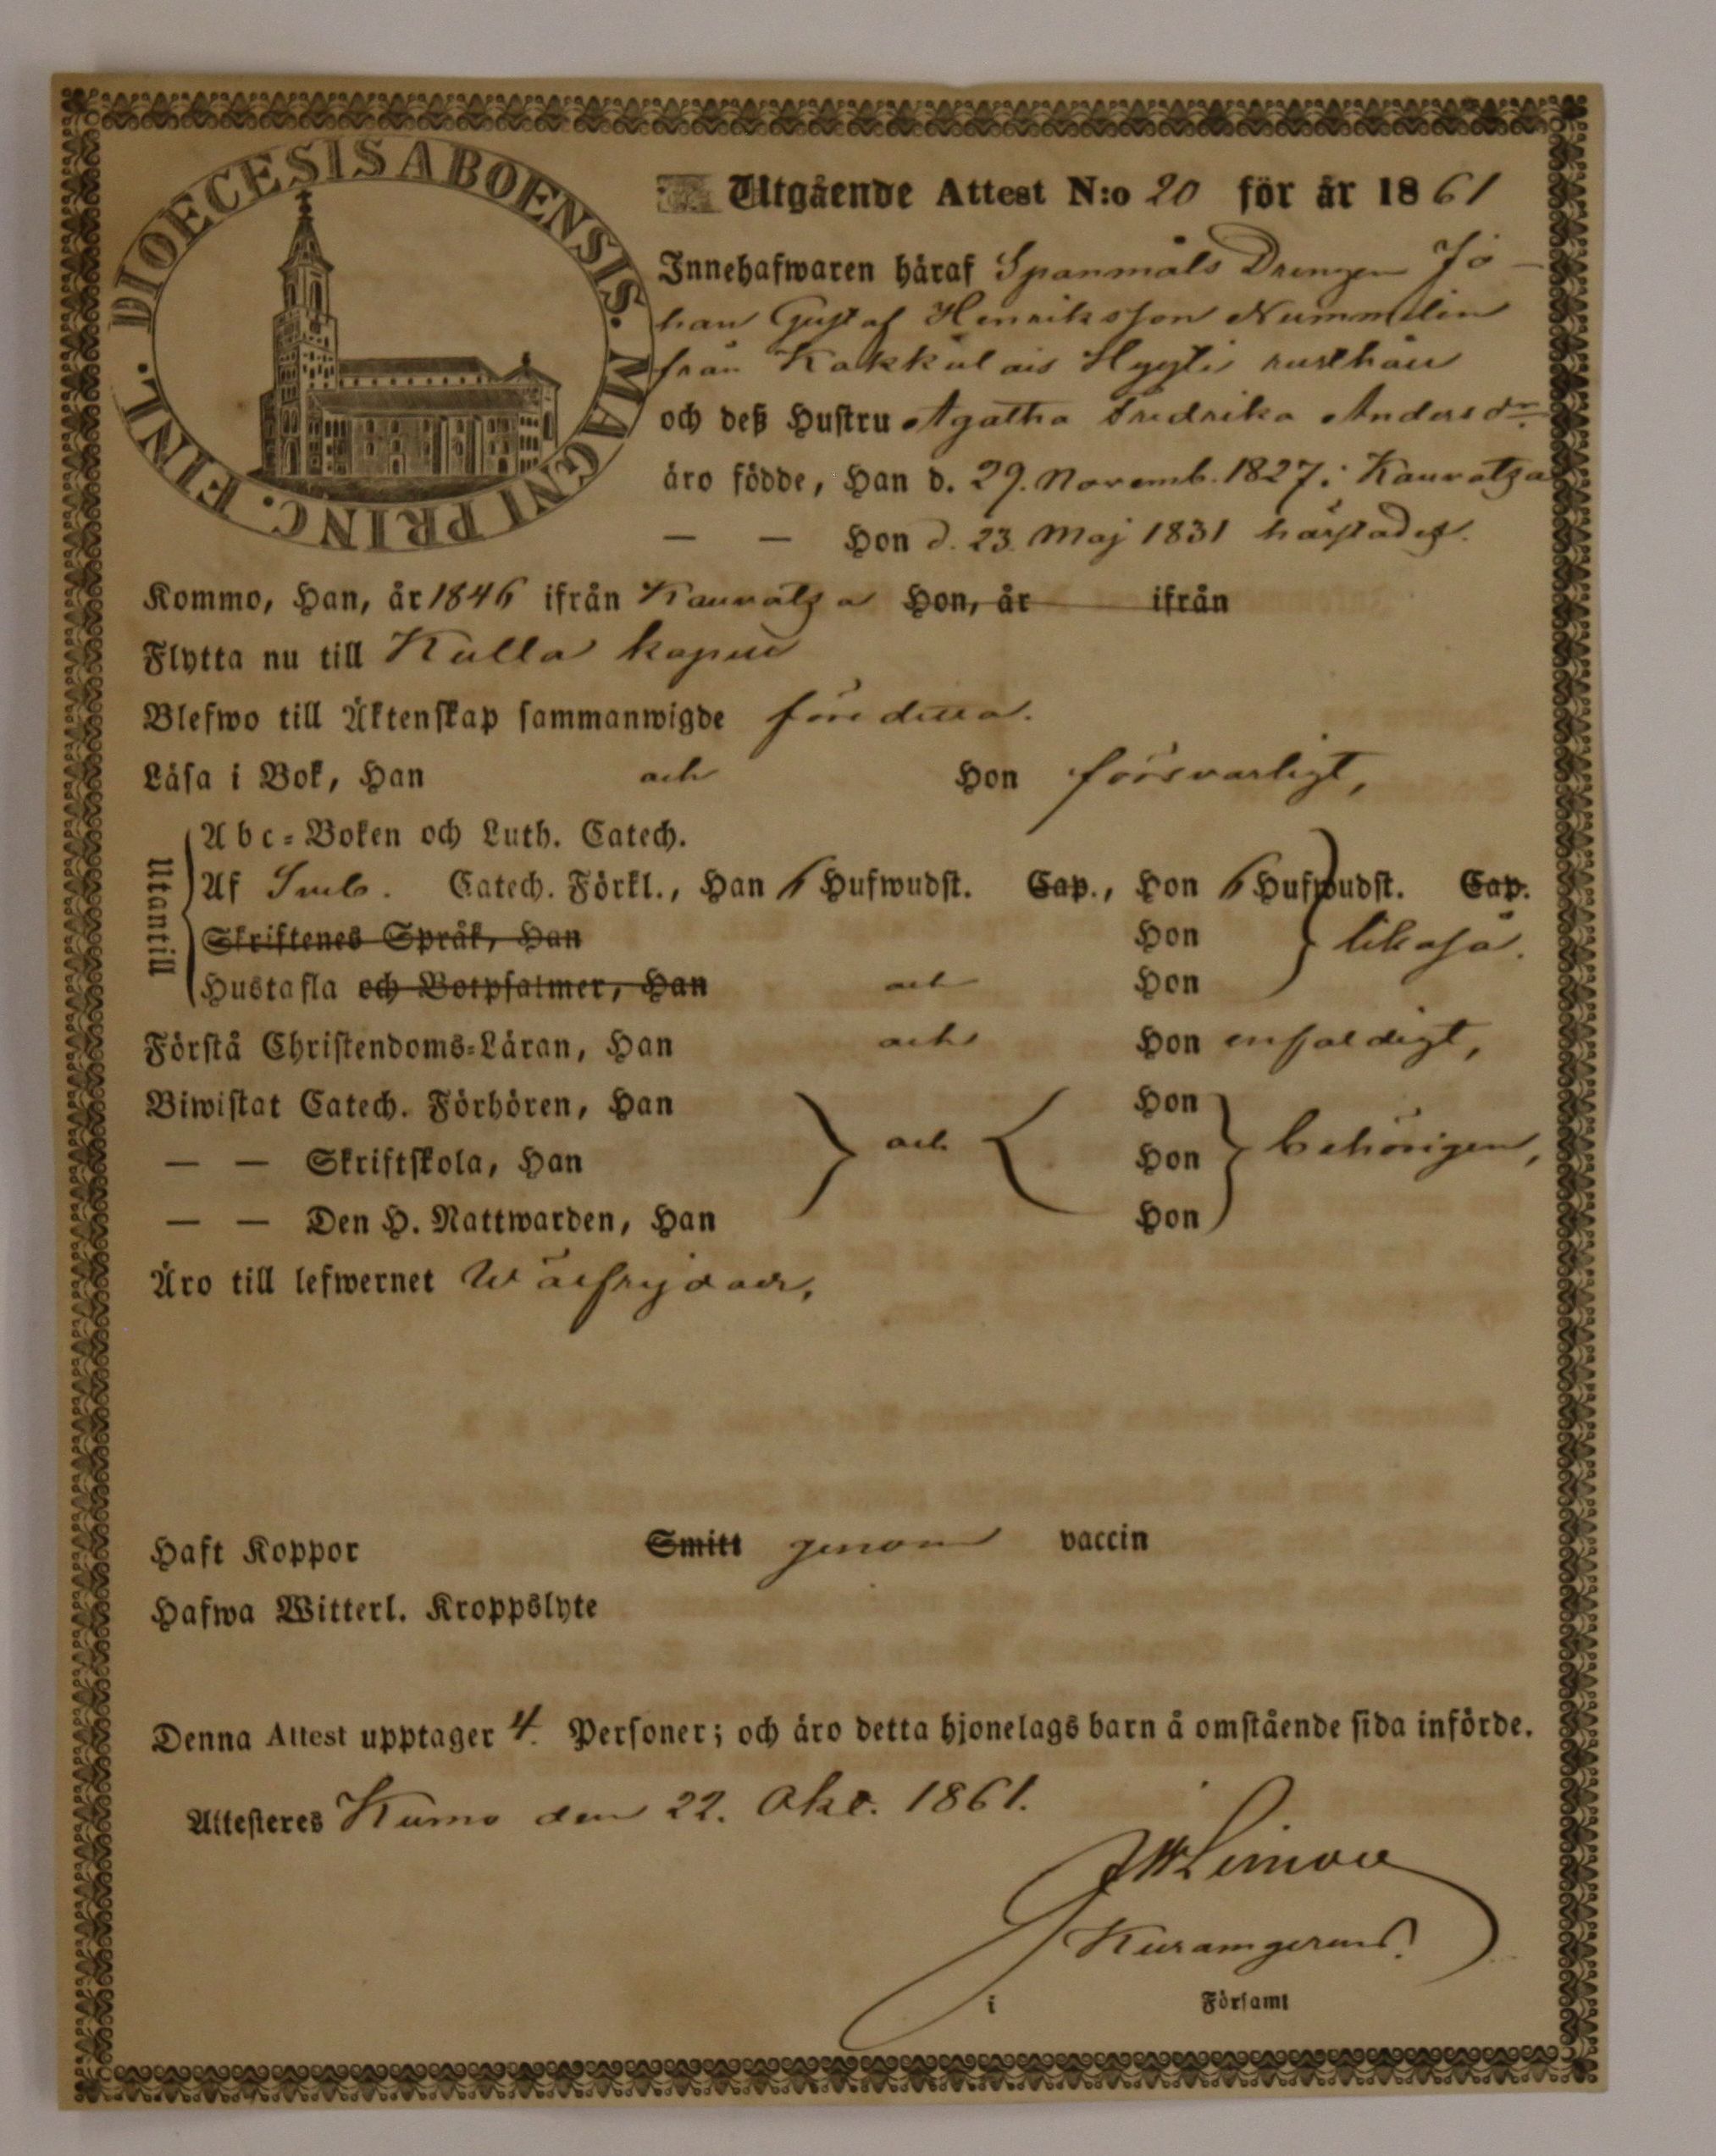 DIOECESIS ABOENSIS. MAGNI PRINC. FINL.
Utgående Attest N:o 20 för år 1861
Innehafwaren häraf Spanmåls Drengen Jo-
han Gustaf Henriksson Nummelin
från Kakkulais Hygti rusthåll
och deß Hustru Agatha Fredrika Andersdr
äro födde, Han d. 29. Novemb. 1827 i Kauvatza
— — Hon d. 23. Maj 1831 härstädes.
Kommo, Han, år 1846 ifrån Kauvatza Hon, år ifrån
Flytta nu till Kulla kapell
Blefwo till Äktenskap sammanwigde före detta.
Läsa i Bok, Han och Hon försvarligt,
Utantill
Abc-Boken och Luth. Catech.
Af Sveb. Catech. Förkl., Han 6 Hufwudst. Cap., Hon 6 Hufwudst. Cap.
Skriftenes Språk, Han Hon likaså.
Hustafla och Botpsalmer, Han och Hon
Förstå Christendoms-Läran, Han och Hon enfaldigt,
Biwistat Catech. Förhören, Han Hon
— — Skriftskola, Han och Hon behörigen,
— — Den H. Nattwarden, Han Hon
Äro till lefwernet Wälfrejdade,
Haft Koppor Smitt genom vaccin
Hafwa Witterl. Kroppslyte
Denna Attest upptager 4. Personer; och äro detta hjonelags barn å omstående sida införde.
Attesteres Kumo den 22. Okt. 1861.
i Församl